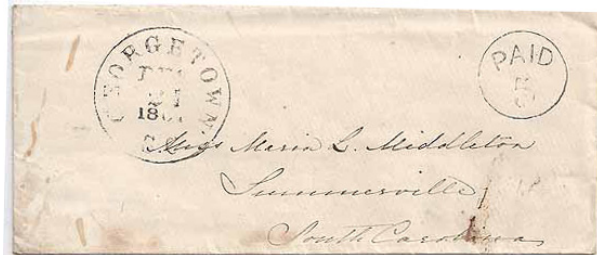 GEORGETOWN
DEC
21
186
S.C.
PAID
5
Miss Maria L. Middleton
Summerville
South Carolina